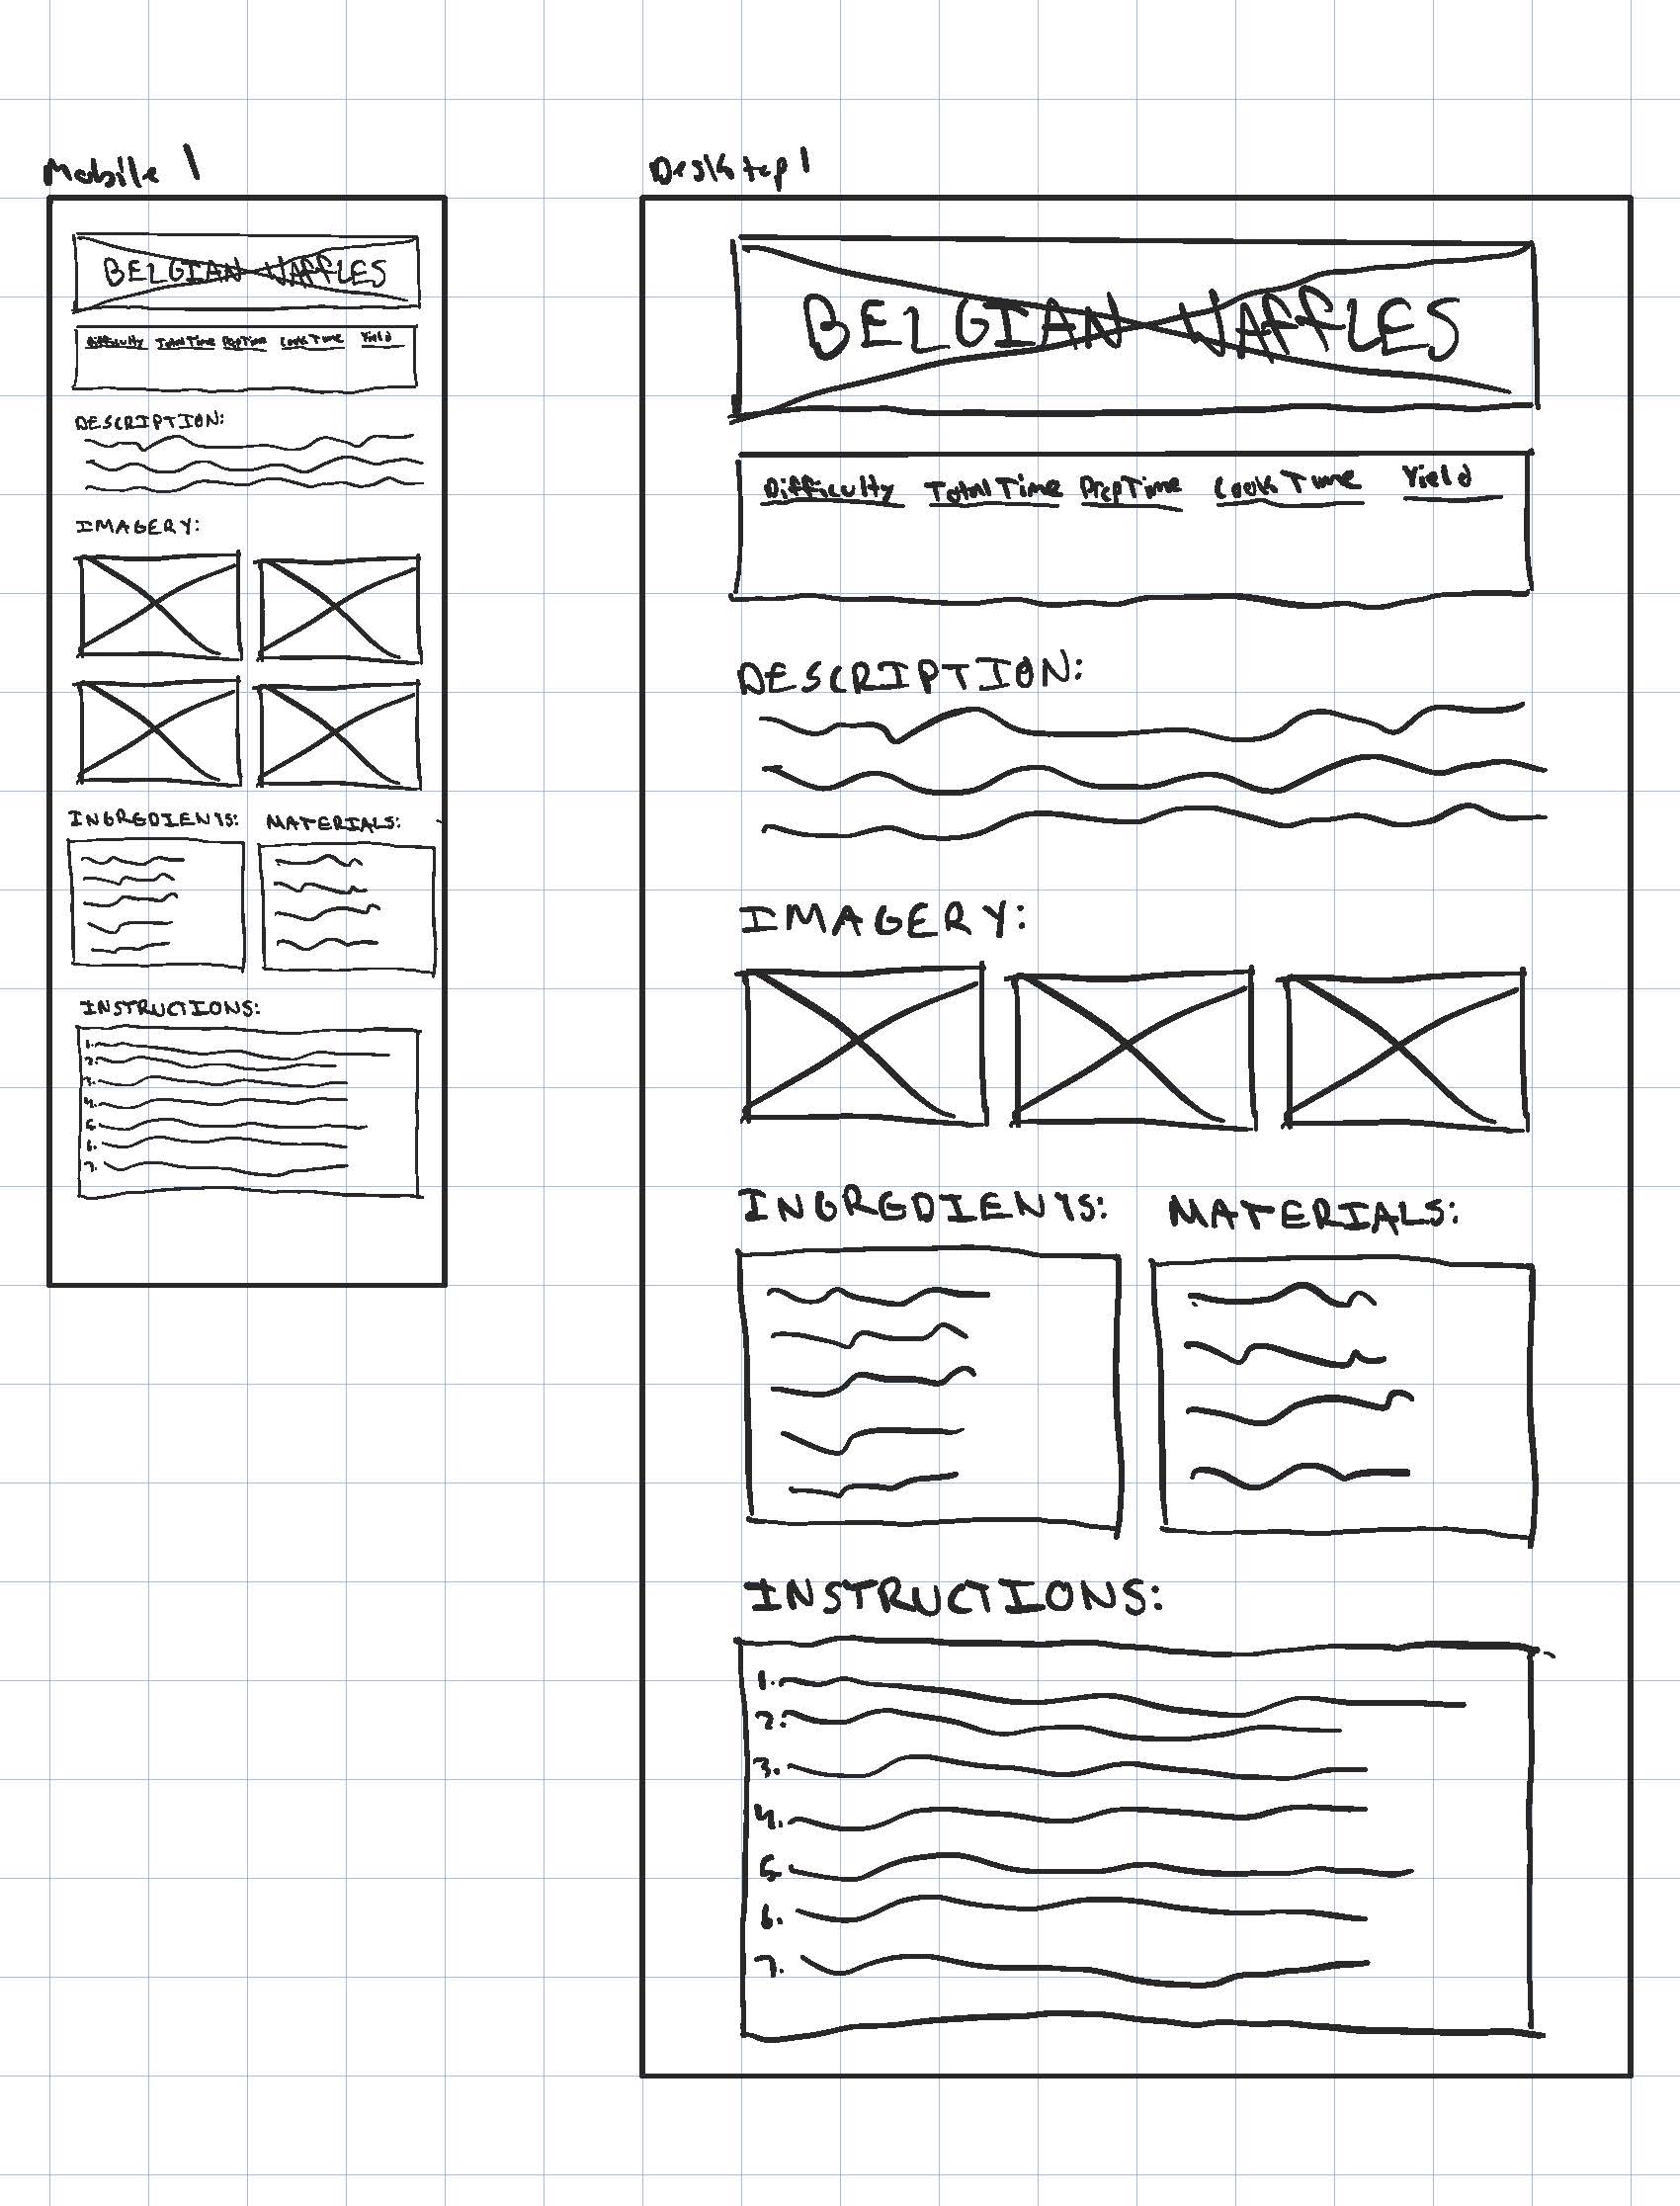 Mobile 1
BELGIAN WAFFLES
Difficulty Total Time Prep Time Cook Time Yield
DESCRIPTION:
IMAGERY:
INGREDIENTS: MATERIALS:
INSTRUCTIONS:
1.
2.
3.
4.
5.
6.
7.
Desktop 1
BELGIAN WAFFLES
Difficulty Total Time Prep Time Cook Time Yield
DESCRIPTION:
IMAGERY:
INGREDIENTS: MATERIALS:
INSTRUCTIONS:
1.
2.
3.
4.
5.
6.
7.